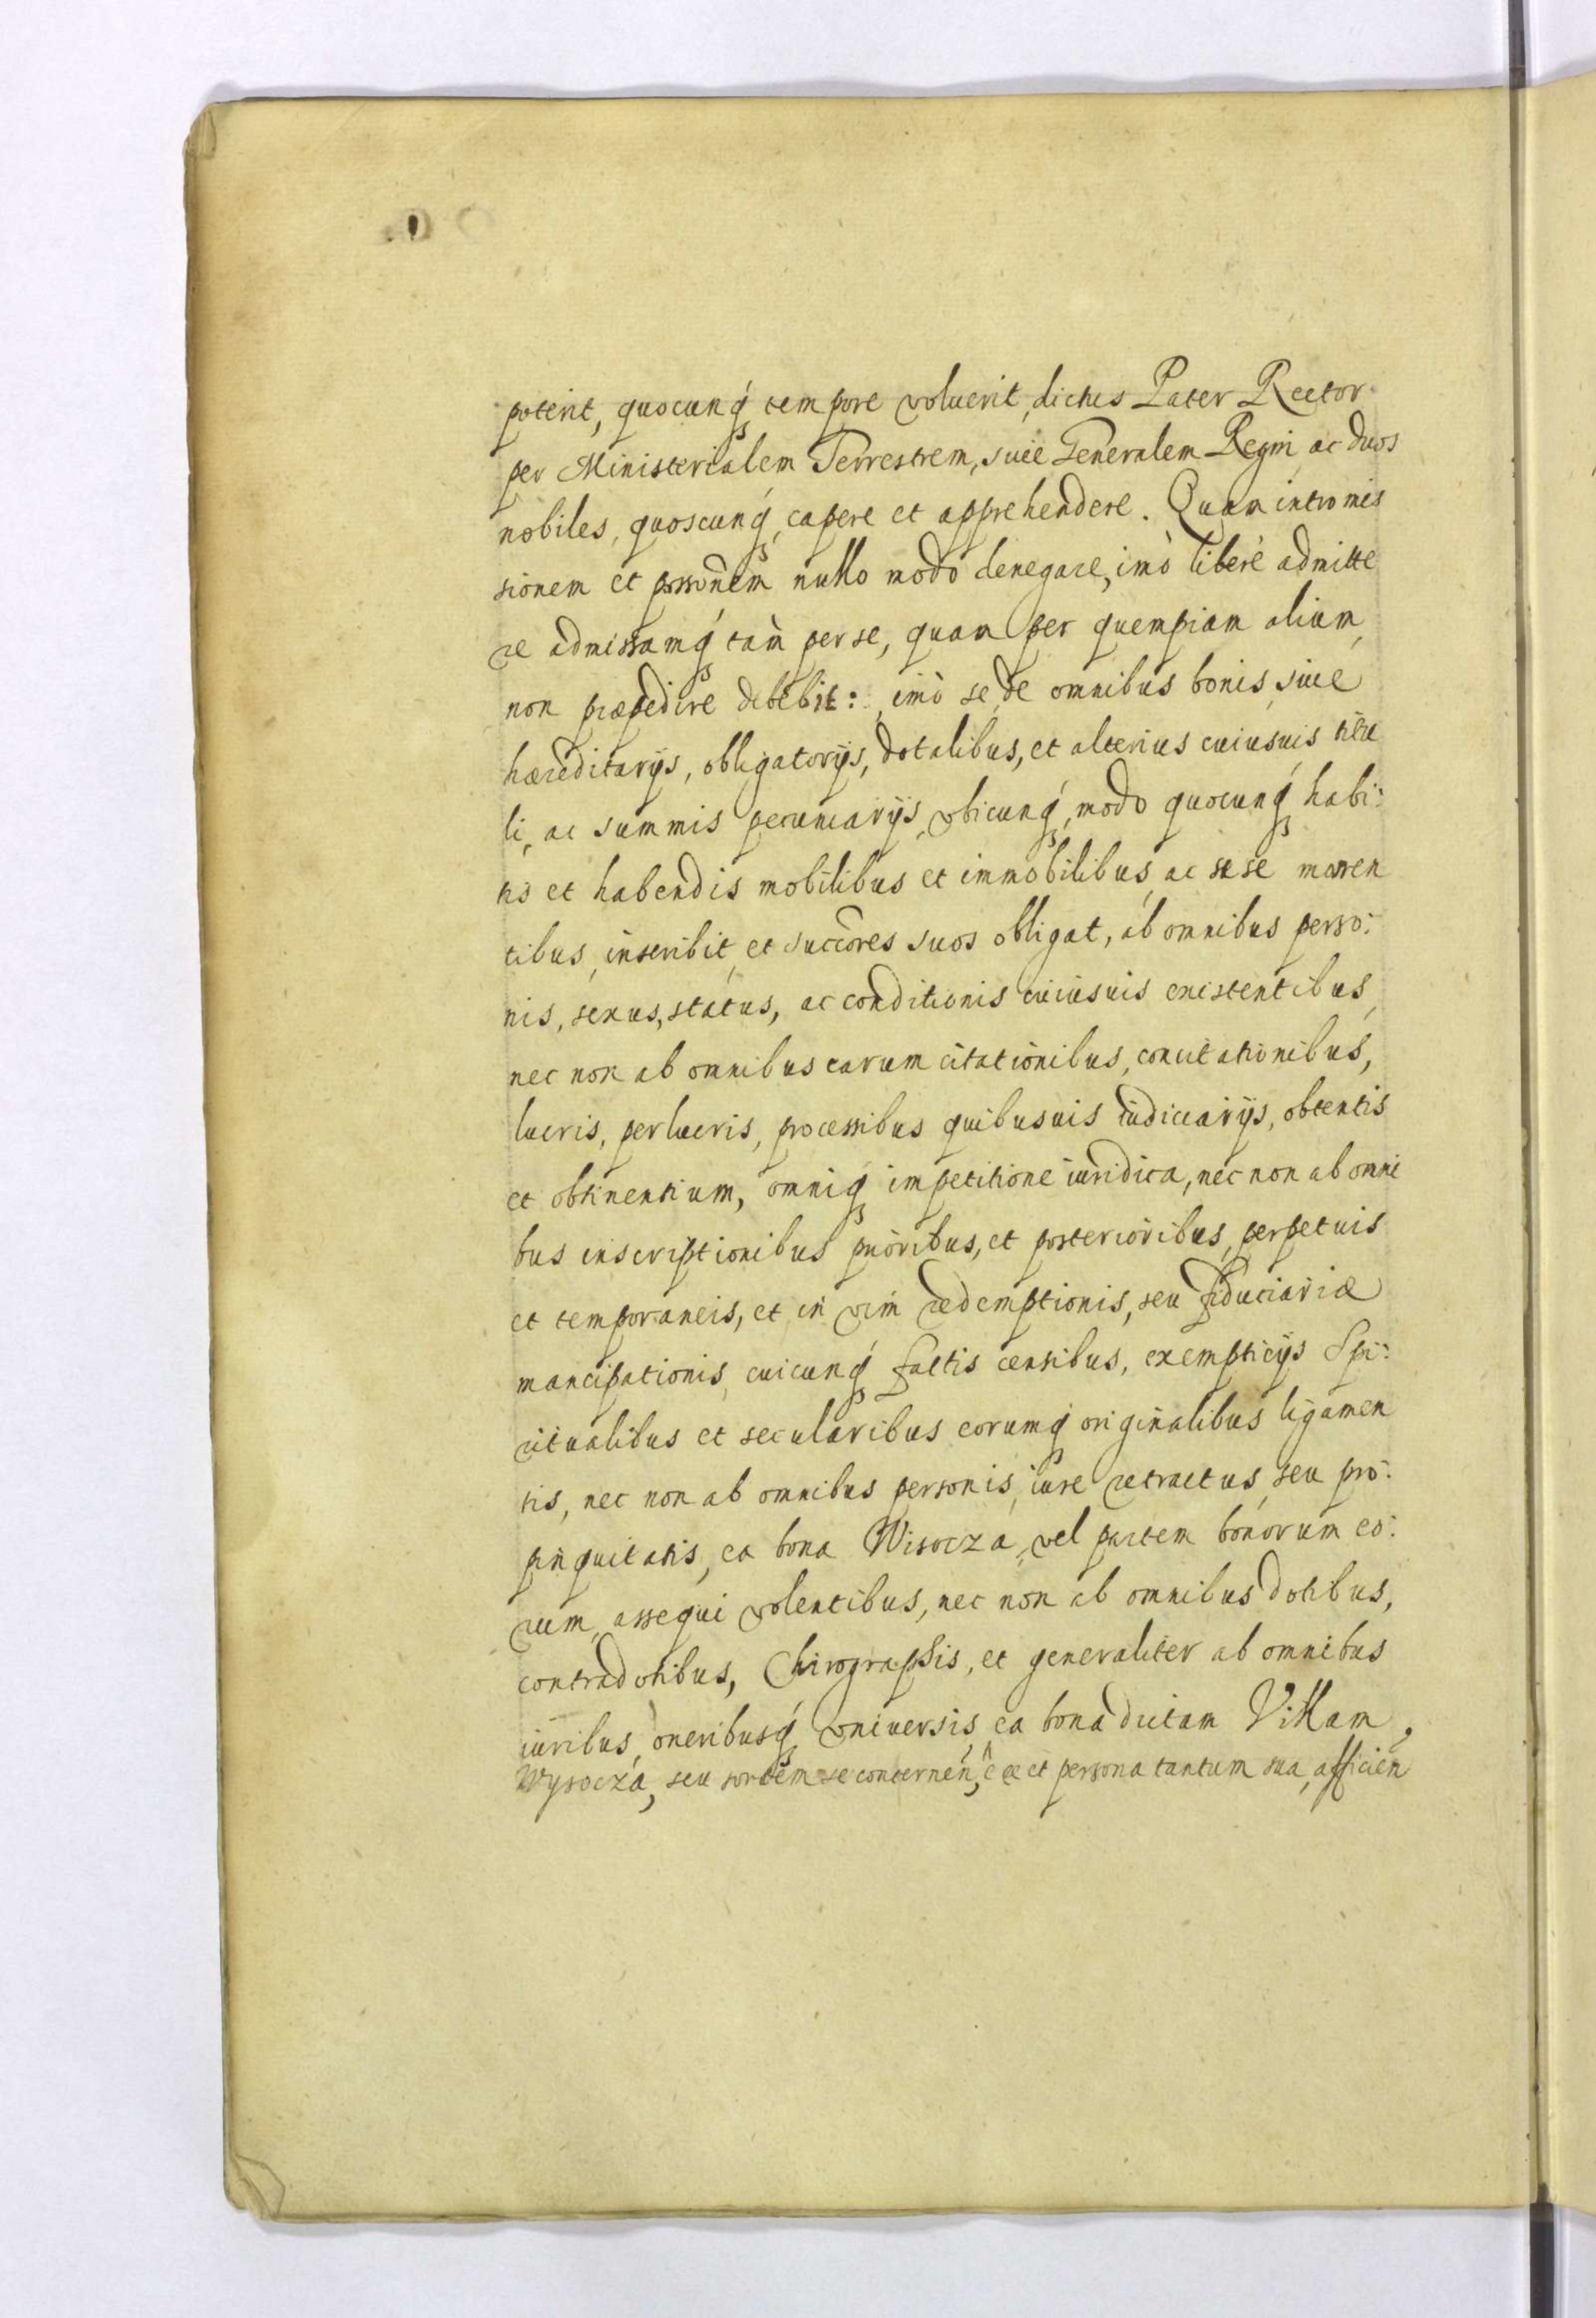 poterit, quocunq́ꝫ tempore voluerit, dictus Pater Rector
per Ministerialem Terrestrem, siue Generalem Regni, ac duos
nobiles, quoscunq́ꝫ, capere et apprehendere. Quam intromis
sionem et possõnem nullo modo denegare, imò liberè admitte
re admissamq́ꝫ tàm per se, quam per quempiam alium,
non præpedire debebit: imò se, de omnibus bonis, siue
hæreditarijs, obligatorijs, dotalibus, et alterius cuiusuis titu
li, ac summis pecuniarijs, vbicunq́ꝫ, modo quocunq́ꝫ habi:
tis et habendis mobilibus et immobilibus, ac sese mouen
tibus, inscribit, et succõres suos obligat, ab omnibus perso:
nis, sexus, status, ac conditionis cuiusuis existentibus,
nec non ab omnibus earum citationibus, concitationibus,
lucris, perlucris, processibus quibusuis iudiciarijs, obtentis
et obtinentium, omniq́ꝫ impetitione iuridica, nec non ab omni
bus inscriptionibus prioribus, et posterioribus, perpetuis
et temporaneis, et in vim redemptionis, seu fiduciariæ
mancipationis, cuicunq́ꝫ factis censibus, exempticijs Spi:
ritualibus et secularibus eorumq́ꝫ originalibus ligamen
tis, nec non ab omnibus personis, iure retractus, seu pro:
pinquitatis, ea bona Wisocza, vel partem bonorum eo:
rum, assequi volentibus, nec non ab omnibus dotibus,
contradotibus, Chirographis, et generaliter ab omnibus
iuribus, oneribusq́ꝫ vniuersis, ea bona dictam Villam,
Wysocza, seu sortem se concernen, et persona tantum sua, afficien